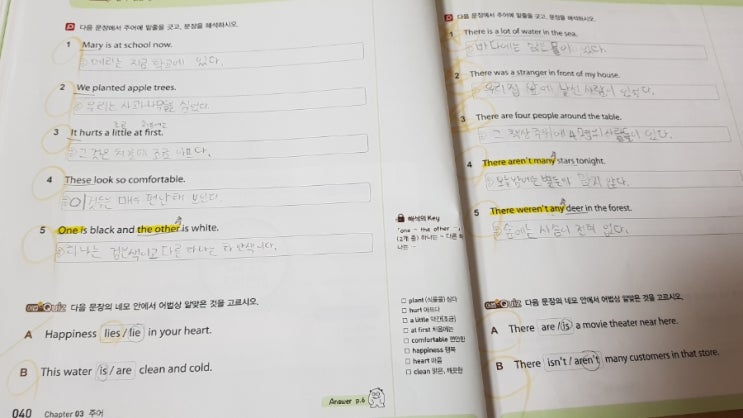 D 다음 문장에서 주어에 밑줄을 긋고, 문장을 해석하시오.
1 Mary is at school now.
메리는 지금 학교에 있다.
2 We planted apple trees.
우리는 사과나무를 심었다.
조금 처음에는
3 It hurts a little at first.
그것은 처음에 조금 아프다.
4 These look so comfortable.
이것들은 매우 편안해 보인다.
5 One is black and the other is white.
하나는 검은색이고 다른 하나는 흰색이다.
Quiz 다음 문장의 네모 안에서 어법상 알맞은 것을 고르시오.
A Happiness lies / lie in your heart.
B This water is / are clean and cold.
040 Chapter 03 주어
해석의 Key
「one ~ the other ~」
(2개 중) 하나는 ~ 다른 하
나는 ~
plant (식물을) 심다
hurt 아프다
a little 약간(조금)
at first 처음에는
comfortable 편안한
happiness 행복
heart 마음
clean 맑은, 깨끗한
Answer p.6
D 다음 문장에서 주어에 밑줄을 긋고, 문장을 해석하시오.
1 There is a lot of water in the sea.
바다에는 많은 물이 있다.
2 There was a stranger in front of my house.
우리집 앞에 낯선 사람이 있었다.
3 There are four people around the table.
그 책상 주위에 4명의 사람들이 있다.
4 There aren't many stars tonight.
오늘밤에는 별들이 많지 않다.
5 There weren't any deer in the forest.
숲에는 사슴이 전혀 없다.
Quiz 다음 문장의 네모 안에서 어법상 알맞은 것을 고르시오.
A There are / is a movie theater near here.
B There isn't / aren't many customers in that store.